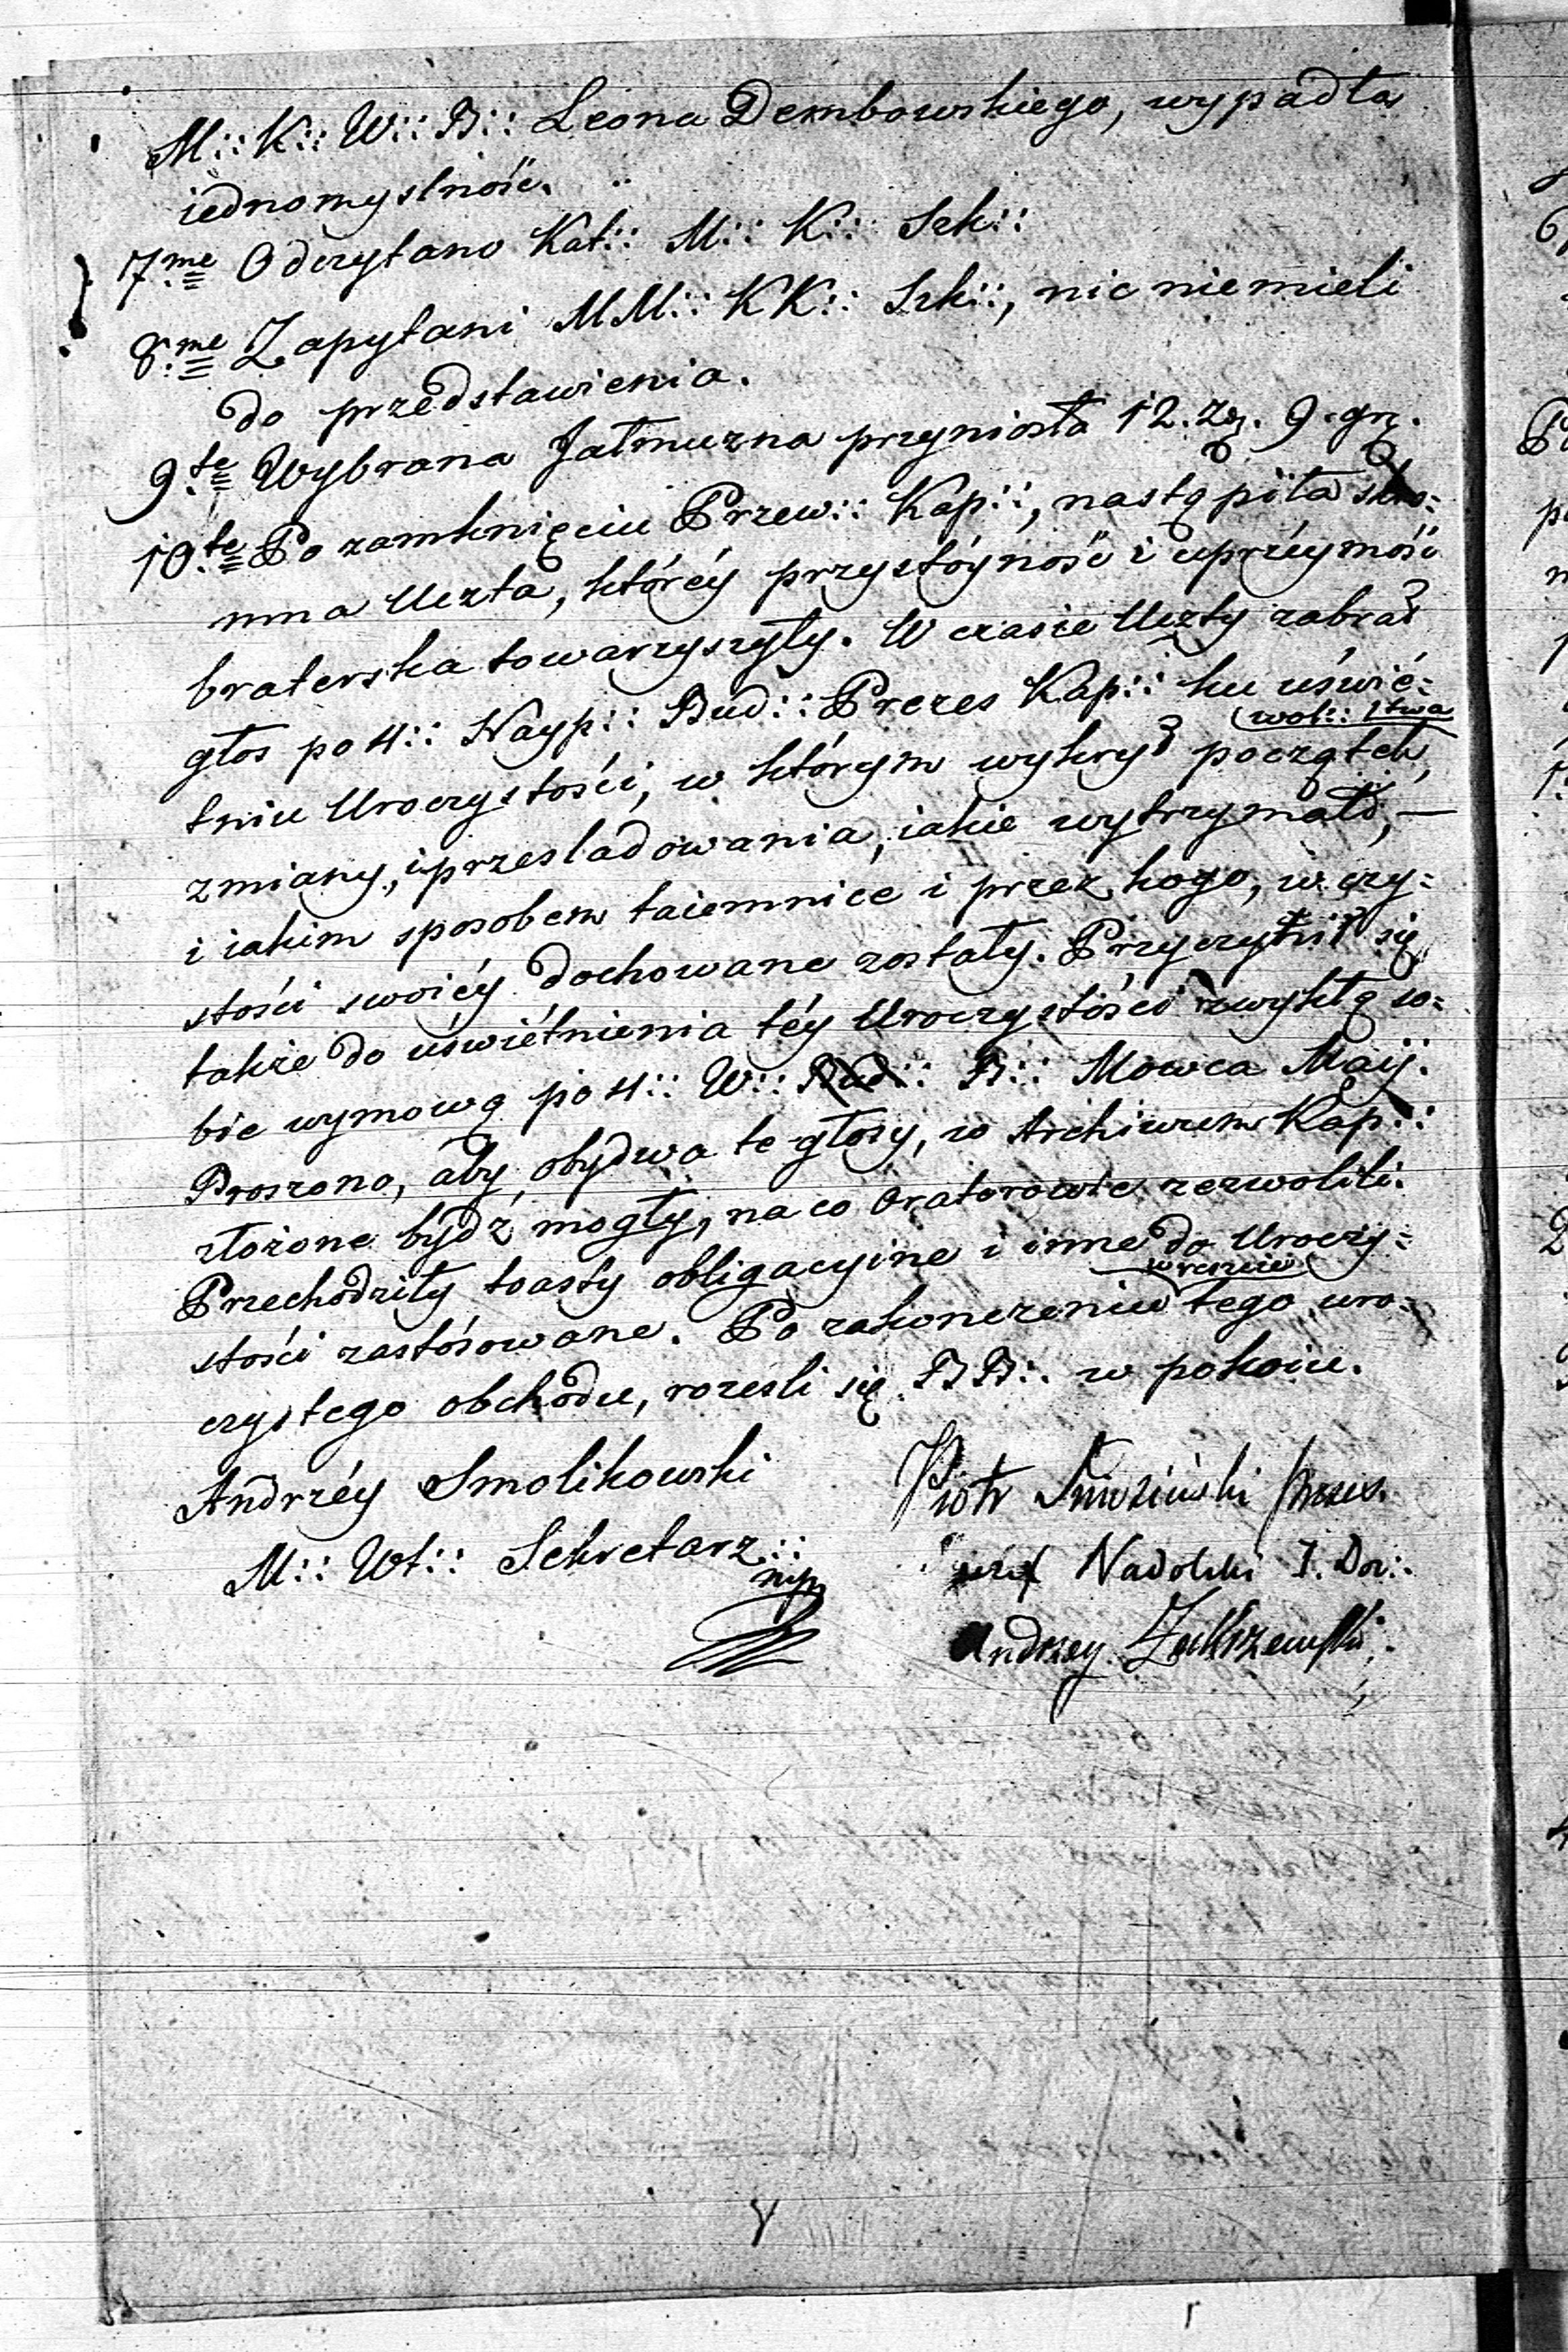 M:: K:: W:: B:: Leona Dembowskiego, wypadła
iednomyslność.
7me Odczytano Kat:: M:: K:: Szk::
8me Zapytani MM:: KK:: Szk::, nic niemieli
do przedstawienia.
9te Wybrana Jałmużna przyniosła 12. zł. 9. gr.
10te Po zamknięciu Przew:: Kap::, nastąpiła skro=
mna Uczta, któréy przystóyność i uprzéymość
braterska towarzyszyły. W czasie Uczty zabrał
głos po 4:: Nayp:: Bud:: Prezes Kap:: ku uświé=
tniu Uroczystości, w którym wykrył początek wol:: stwa,
zmiany, i przesladowania, iakie wytrzymało, —
i iakim sposobem taiemnice i przez kogo, w czy=
stości swoiéy dochowane zostały. Przyczynił się
także do uświétnienia téy Uroczystości zwykłą so=
bie wymową po 4:: W:: Bud:: B:: Mowca Maij.
Proszono, aby obydwa te głosy, w Archiwum Kap::
złożone bydź mogły, na co Oratorowie zezwolili.
Przechodziły toasty obligacyine i inne do Uroczy=
stości zastósowane. Po zakonczeniu wreszcie tego uro=
czystego obchodu, rozesli się BB:. w pokoiu.
Andrzéy Smolikowski
M:: Wt:: Sekretarz:: mp
Piotr prezes.
Nadolski I. Doz:.
Andrzey